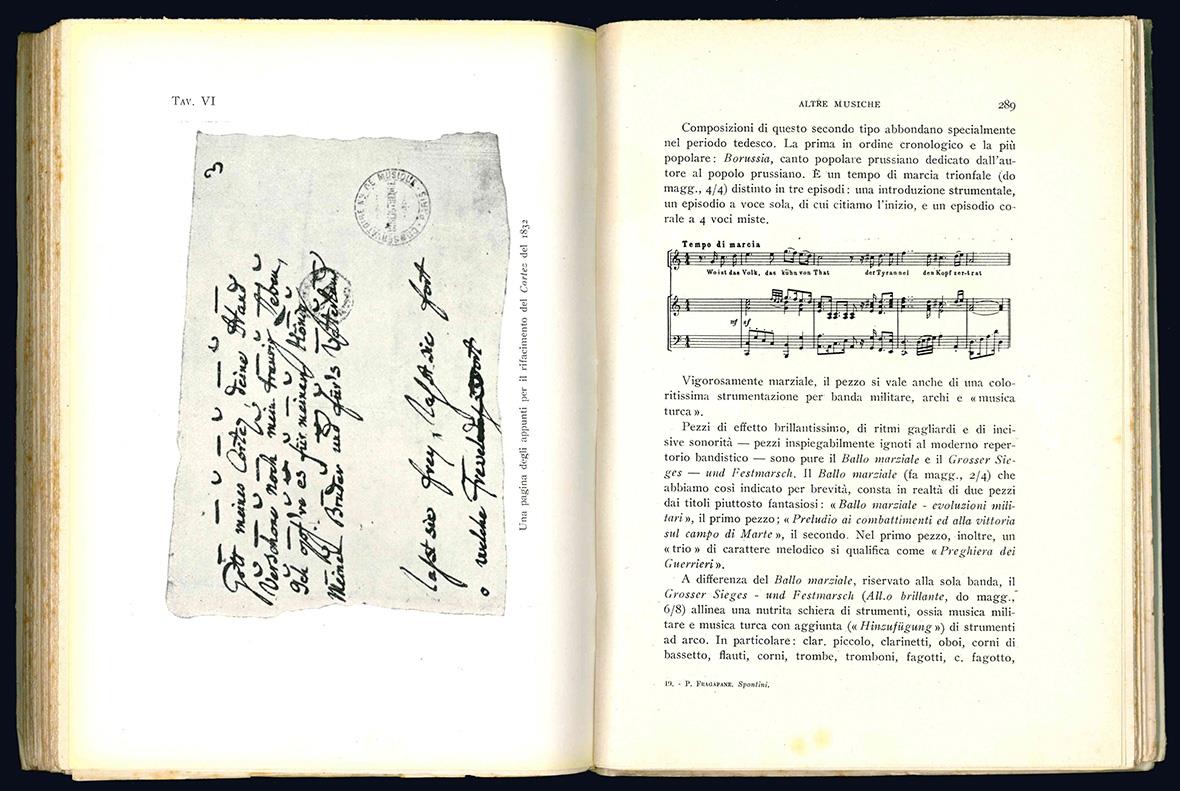 TAV. VI
3
Gott meines Cortez deine Hand
Verschone noch mein traurig Leben,
Ich opf're es für meinen König
Meinen Bruder und für's Vaterland
laßt sie frey, laßt sie fort
o welche
CONSERVATOIRE DE MUSIQUE
Una pagina degli appunti per il rifacimento del Cortez del 1832
ALTRE MUSICHE 289
Composizioni di questo secondo tipo abbondano specialmente
nel periodo tedesco. La prima in ordine cronologico e la più
popolare: Borussia, canto popolare prussiano dedicato dall'au-
tore al popolo prussiano. È un tempo di marcia trionfale (do
magg., 4/4) distinto in tre episodi: una introduzione strumentale,
un episodio a voce sola, di cui citiamo l'inizio, e un episodio co-
rale a 4 voci miste.
Tempo di marcia
Wo ist das Volk, das kühn von That der Tyrannei den Kopf zer-trat
mf sf
Vigorosamente marziale, il pezzo si vale anche di una colo-
ritissima strumentazione per banda militare, archi e «musica
turca».
Pezzi di effetto brillantissimo, di ritmi gagliardi e di inci-
sive sonorità — pezzi inspiegabilmente ignoti al moderno reper-
torio bandistico — sono pure il Ballo marziale e il Grosser Sie-
ges — und Festmarsch. Il Ballo marziale (fa magg., 2/4) che
abbiamo così indicato per brevità, consta in realtà di due pezzi
dai titoli piuttosto fantasiosi: «Ballo marziale - evoluzioni mili-
tari», il primo pezzo; «Preludio ai combattimenti ed alla vittoria
sul campo di Marte», il secondo. Nel primo pezzo, inoltre, un
«trio» di carattere melodico si qualifica come «Preghiera dei
Guerrieri».
A differenza del Ballo marziale, riservato alla sola banda, il
Grosser Sieges - und Festmarsch (All.o brillante, do magg.,
6/8) allinea una nutrita schiera di strumenti, ossia musica mili-
tare e musica turca con aggiunta («Hinzufügung») di strumenti
ad arco. In particolare: clar. piccolo, clarinetti, oboi, corni di
bassetto, flauti, corni, trombe, tromboni, fagotti, c. fagotto,
19. - P. FRAGAPANE. Spontini.